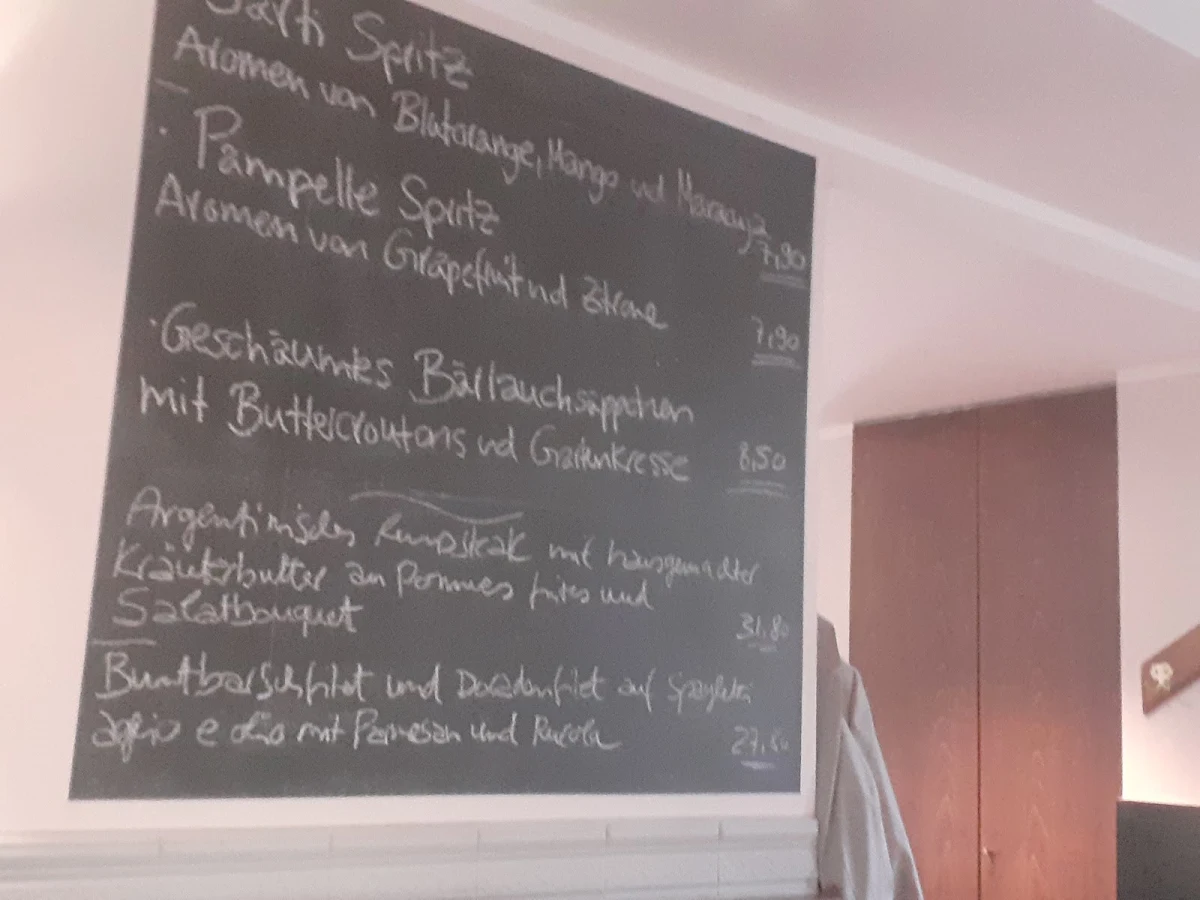 Sarti Spritz
Aromen von Blutorange, Mango und Maracuja
7,90
· Pampelle Spritz
Aromen von Grapefruit und Zitrone
7,90
· Geschäumtes Bärlauchsüppchen
mit Buttercroutons und Gartenkresse 8,50
Argentinisches Rumpsteak mit hausgemachter
Kräuterbutter an Pommes frites und
Salatbouquet 31,80
Buntbarschfilet und Doradenfilet auf Spaghetti
aglio e olio mit Parmesan und Rucola